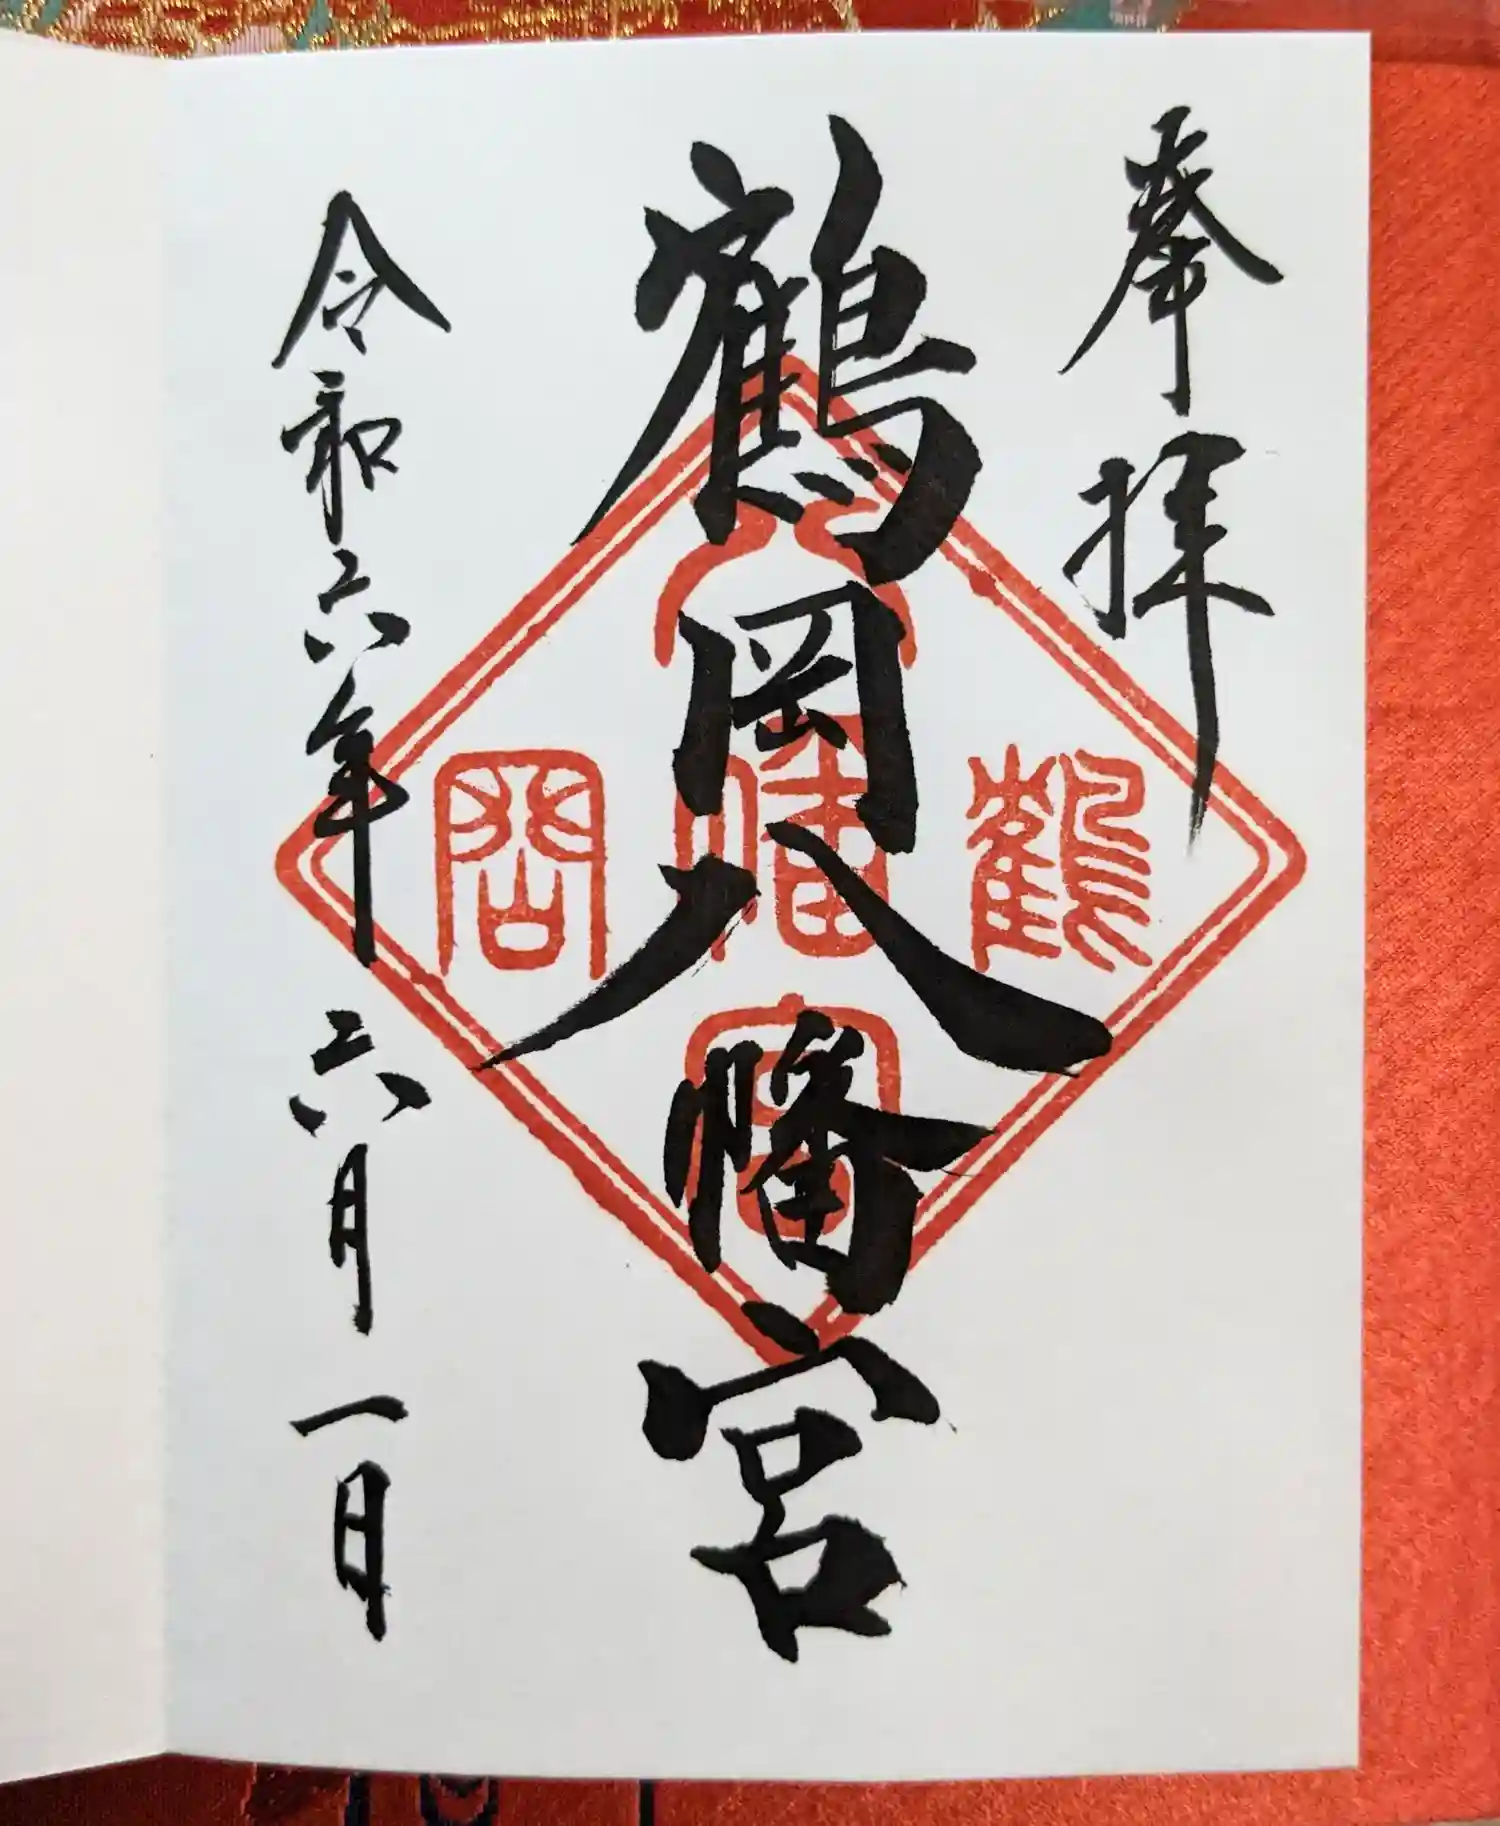 奉拝
鶴岡八幡宮
令和六年 六月 一日
鶴
八幡宮
岡